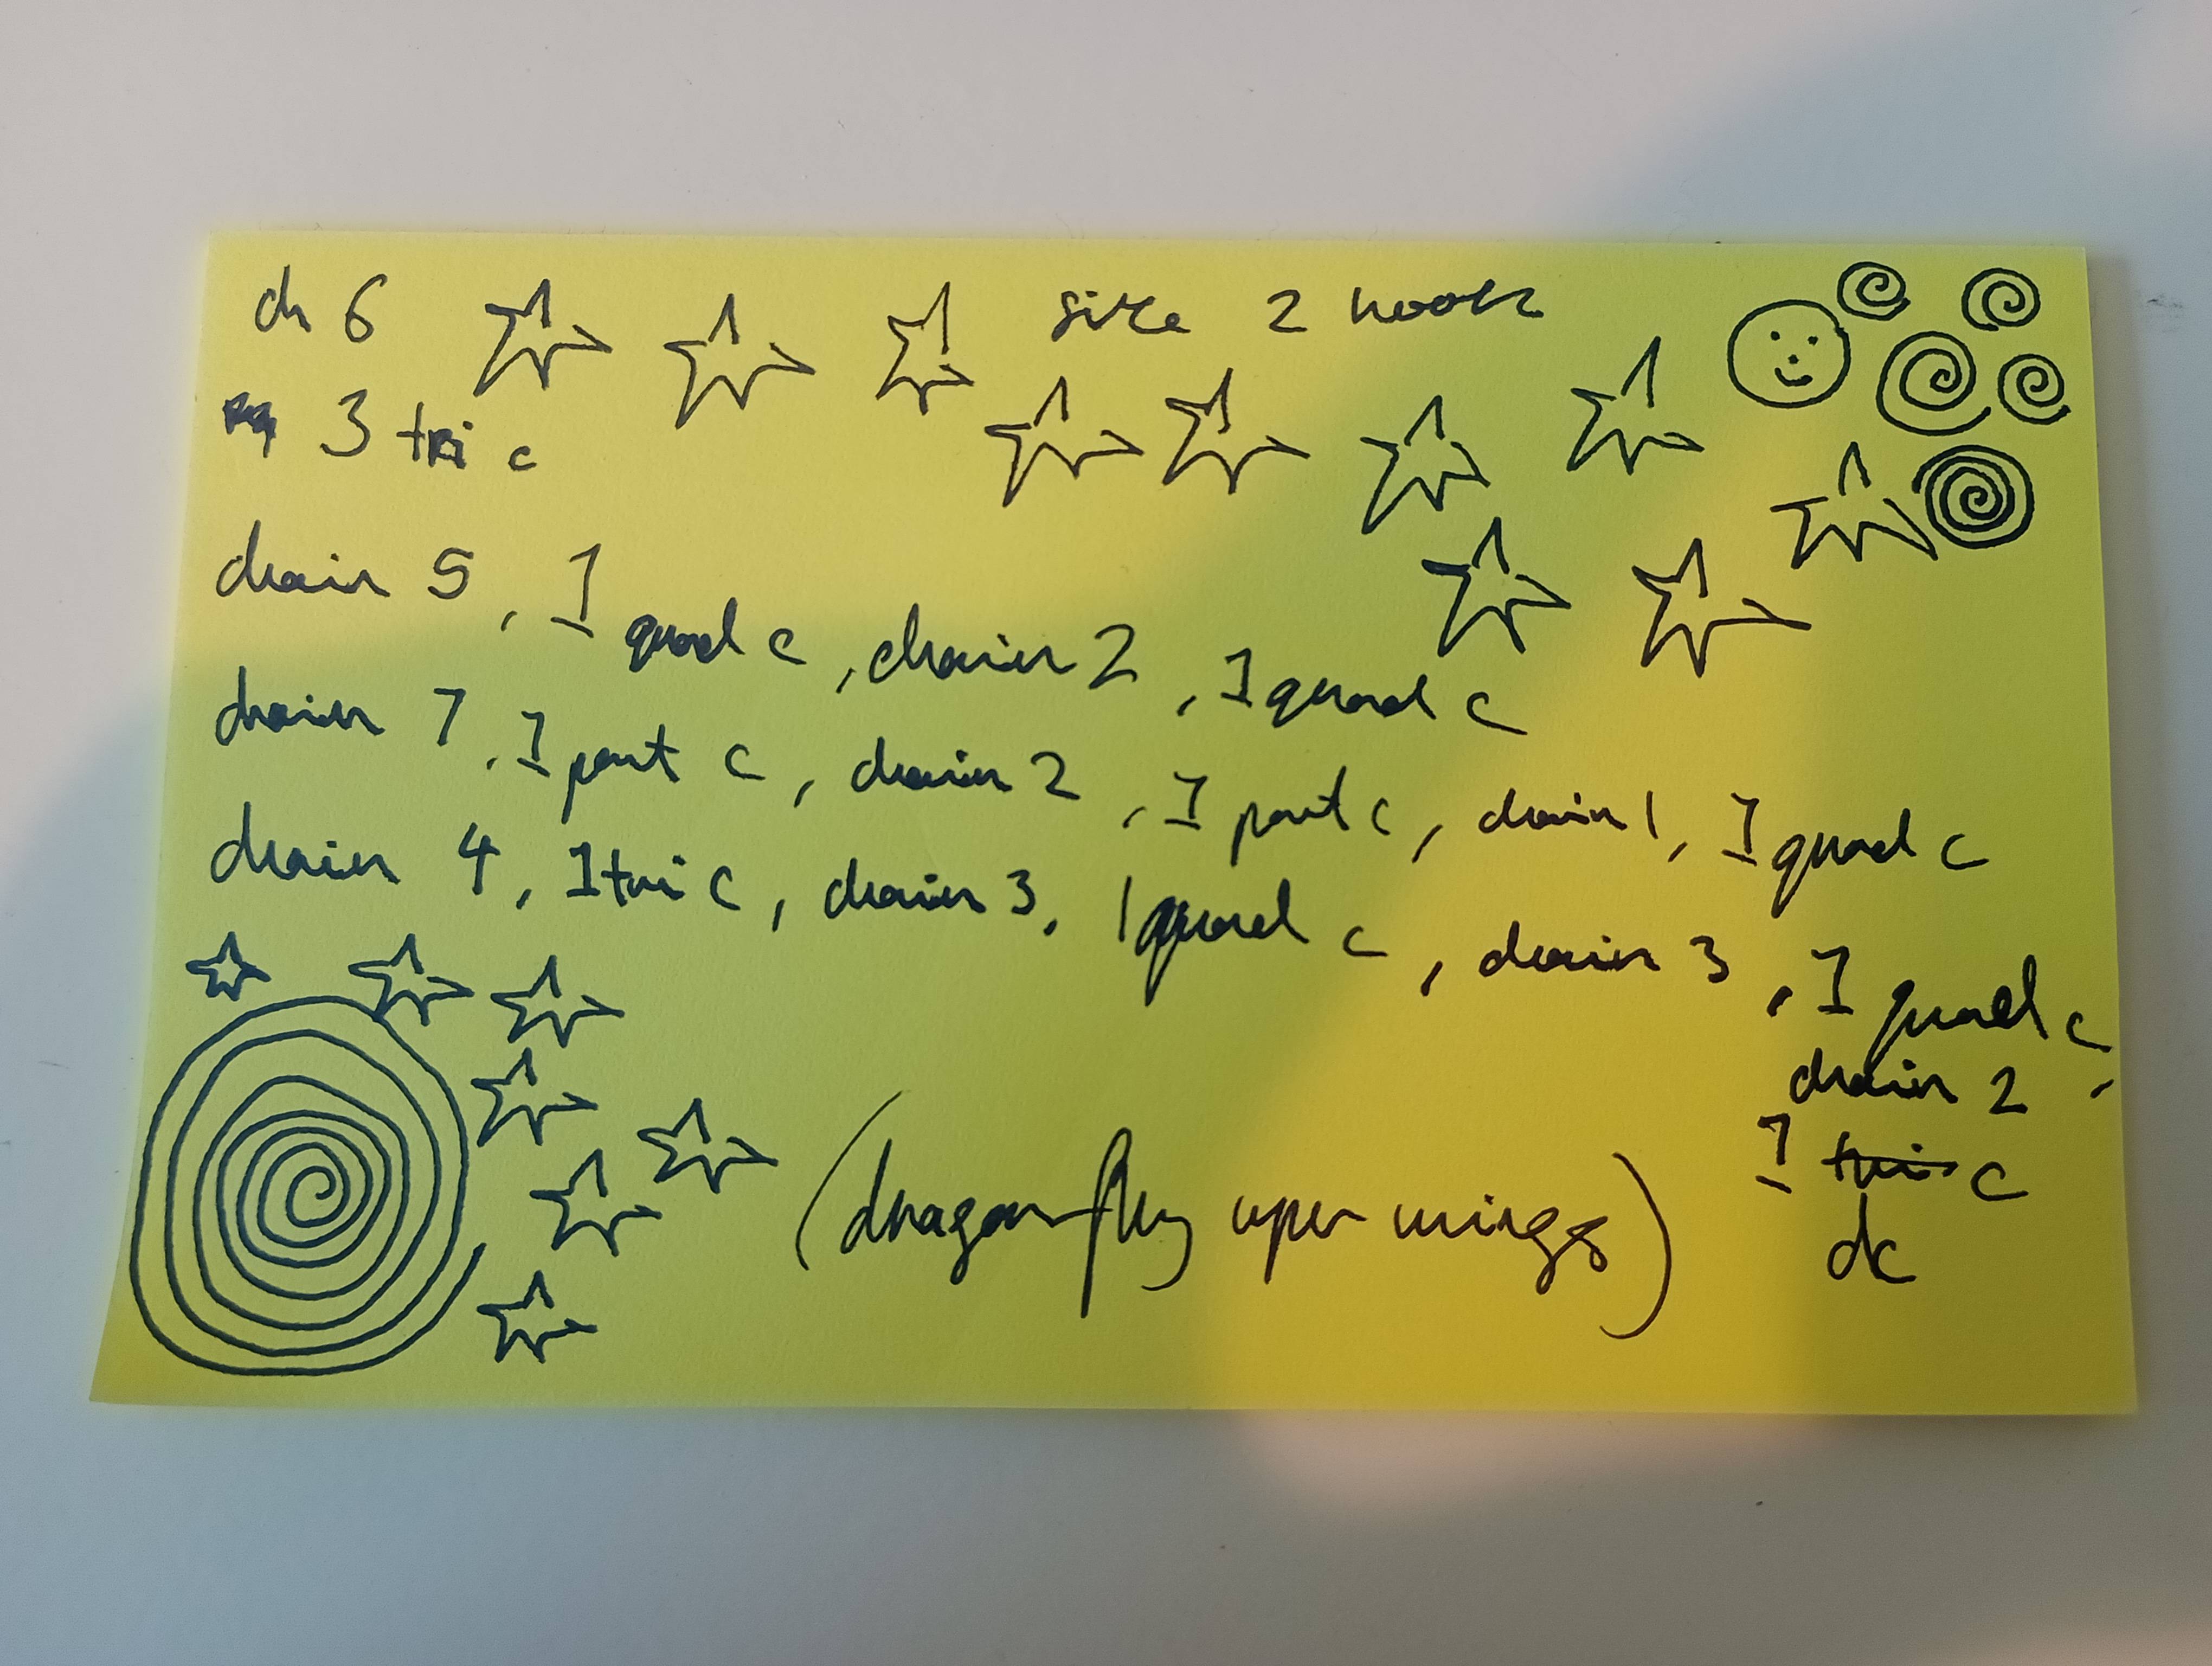 ch 6 size 2 hook
3 tri c
chain 5, 1 quad c, chain 2, 1 quad c
chain 7, 1 pent c, chain 2, 1 pent c, chain 1, 1 quad c
chain 4, 1 tri c, chain 3, 1 quad c, chain 3, 1 quad c,
chain 2,
1 tri c
dc
(dragonfly uper wings)